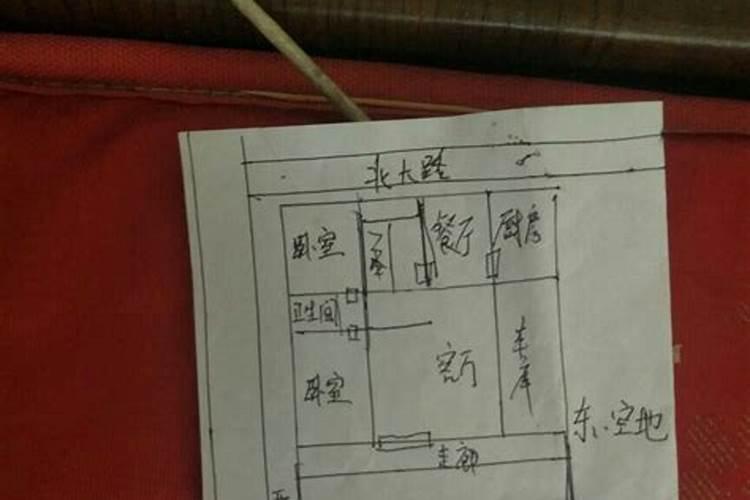 北大路
卧室
餐厅
厨房
卫生间
客厅
车库
卧室
东:空地
走廊